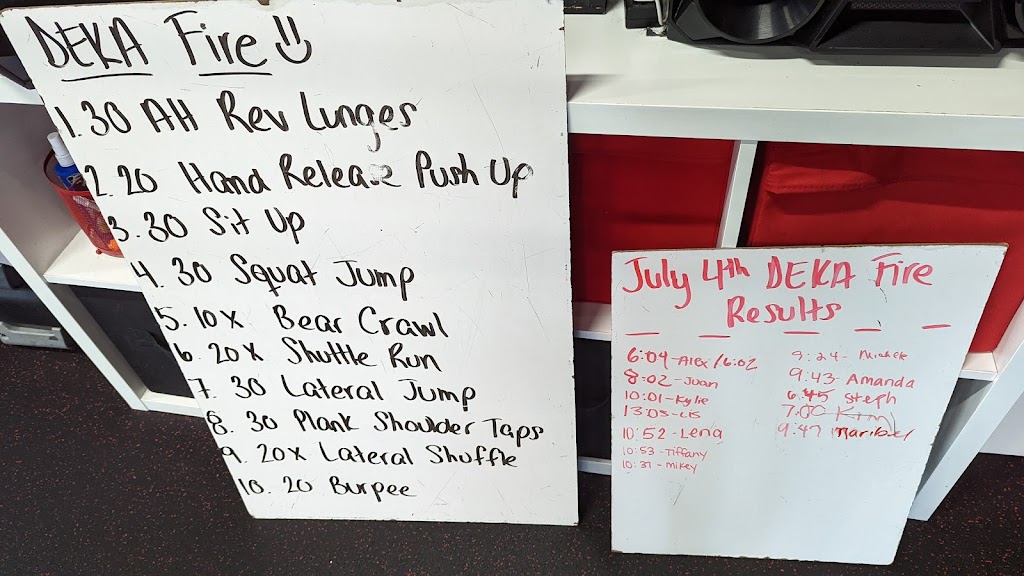 DEKA Fire
1. 30 AH Rev Lunges
2. 20 Hand Release Push Up
3. 30 Sit Up
4. 30 Squat Jump
5. 10x Bear Crawl
6. 20x Shuttle Run
7. 30 Lateral Jump
8. 30 Plank Shoulder Taps
9. 20x Lateral Shuffle
10. 20 Burpee
July 4th DEKA Fire
Results
6:04-Alex/6:02
8:02-Juan
10:01-Kylie
13:03-
10:52-Lena
10:53-Tiffany
10:31-Mikey
9:24-
9:43-Amanda
6:45 Steph
7:00 Kim
9:47 Maribel